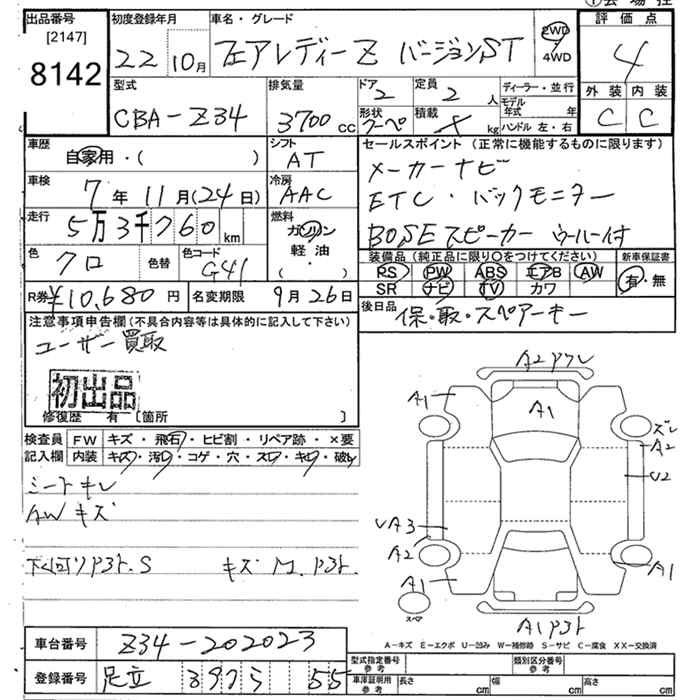 出品番号
[2147]
8142
初度登録年月
22 10月
車名・グレード
フェアレディーZ バージョンST
2WD
4WD
評価点
4
外装 内装
C C
型式
CBA-Z34
排気量
3700 cc
ドア
2
形状
クーペ
定員
2 人
積載
kg
ディーラー・並行
モデル年式 年
ハンドル 左・右
車歴
自家用・( )
シフト
AT
セールスポイント (正常に機能するものに限ります)
メーカーナビ
ETC・バックモニター
BOSEスピーカー ウーハー付
車検
7年 11月(24日)
冷房
AAC
走行
5万3千760 km
燃料
ガソリン
軽油
( ・ )
色
クロ
色替
色コード
G41
装備品 (純正品に限り○をつけてください)
PS PW ABS エアB AW
SR ナビ TV カワ
新車保証書
有・無
R券 ¥10,680円
名変期限 9月26日
後日品
保・取・スペアーキー
注意事項申告欄(不具合内容等は具体的に記入して下さい)
ユーザー買取
初出品
修復歴 有 [箇所 ]
検査員
記入欄
FW キズ・飛石・ヒビ割・リペア跡・×要
内装 キズ・汚れ・コゲ・穴・スレ・キレ・破れ
シートキレ
AWキズ
下回りP3ト.S キズM.P3ト.
A2 P7レ
A1
A1
ズレ
A2
U2
UA3
A2
A1
A1
スペア
A1P3ト
A-キズ E-エクボ U-凹み W-補修跡 S-サビ C-腐食 XX-交換済
車台番号
Z34-202023
登録番号
足立
55
型式指定番号
参考
類別区分番号
参考
車庫証明用
参考
長さ cm
幅 cm
高さ cm